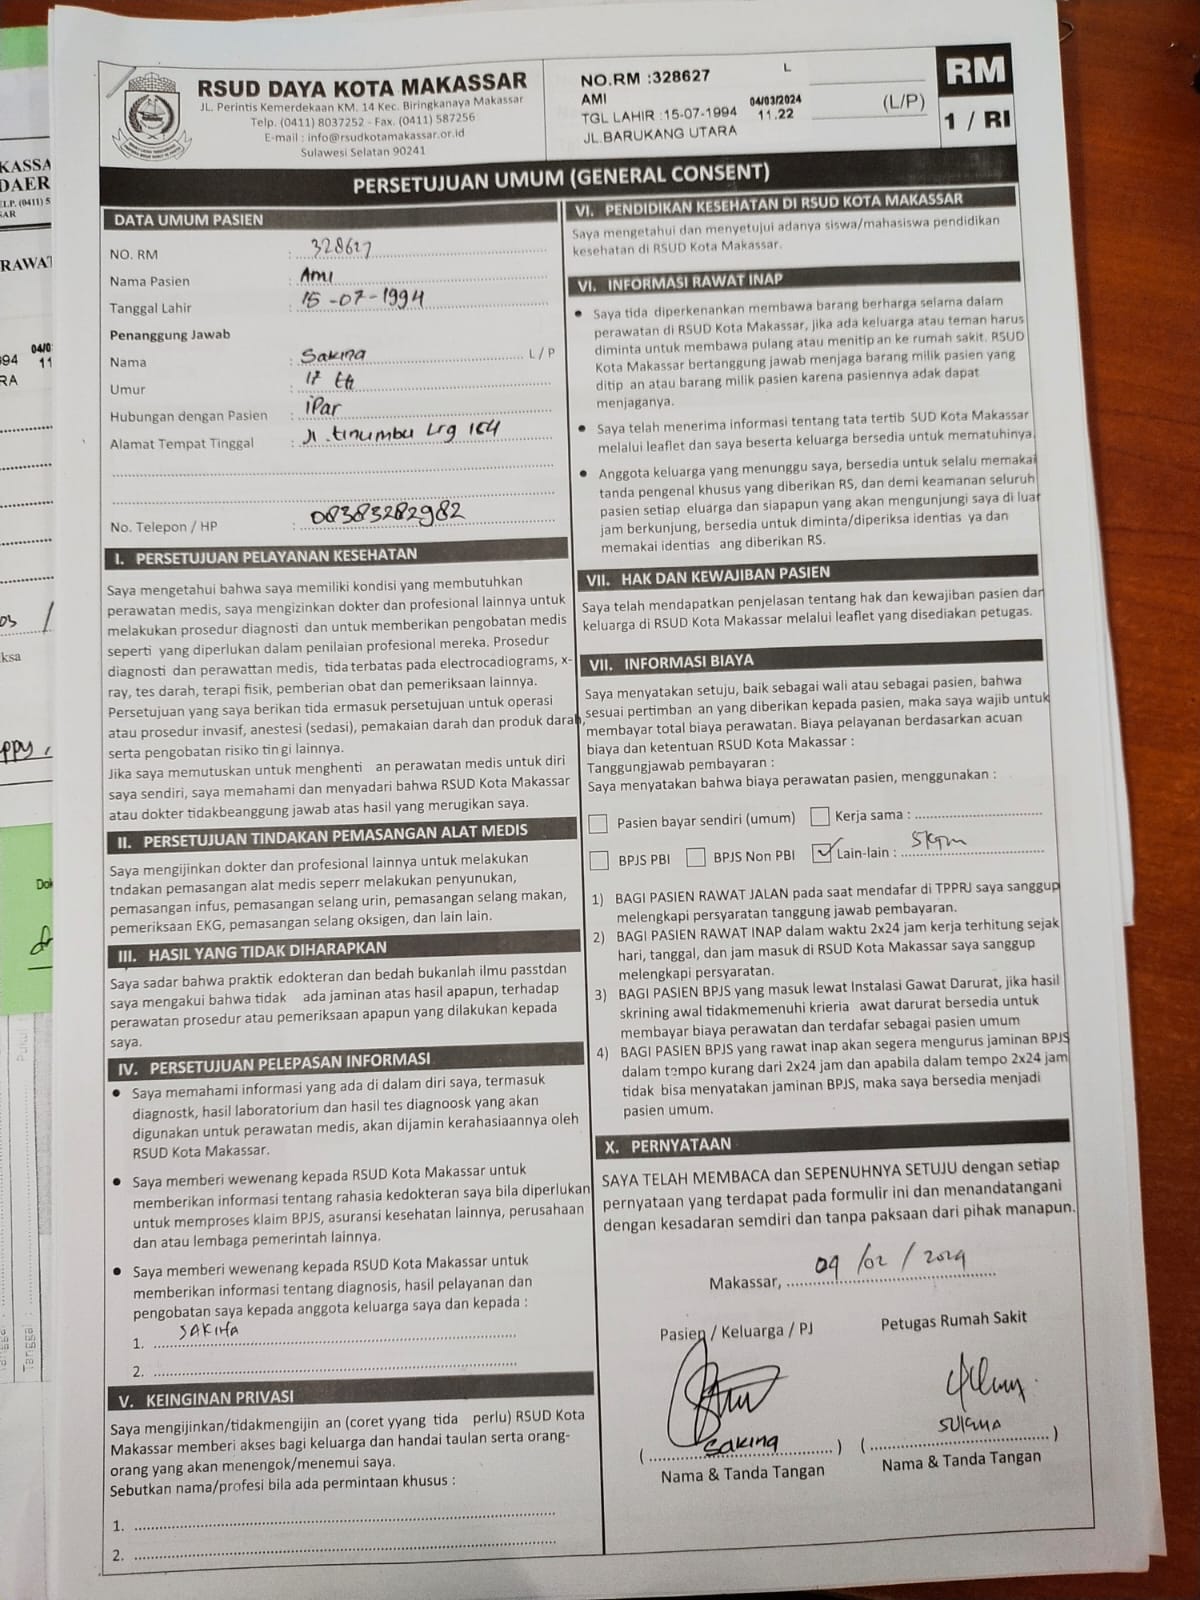 RSUD DAYA KOTA MAKASSAR
JL. Perintis Kemerdekaan KM. 14 Kec. Biringkanaya Makassar
Telp. (0411) 8037252 - Fax. (0411) 587256
E-mail : info@rsudkotamakassar.or.id
Sulawesi Selatan 90241
NO.RM :328627 L
AMI
TGL LAHIR :15-07-1994
JL.BARUKANG UTARA
04/03/2024
11.22
(L/P)
RM
1 / RI
PERSETUJUAN UMUM (GENERAL CONSENT)
DATA UMUM PASIEN
NO. RM : 328627
Nama Pasien : Ami
Tanggal Lahir : 15-07-1994
Penanggung Jawab
Nama : Sakina L / P
Umur : 17 th
Hubungan dengan Pasien : iPar
Alamat Tempat Tinggal : Jl. tinumbu Lrg 164
No. Telepon / HP : 08383282982
I. PERSETUJUAN PELAYANAN KESEHATAN
Saya mengetahui bahwa saya memiliki kondisi yang membutuhkan
perawatan medis, saya mengizinkan dokter dan profesional lainnya untuk
melakukan prosedur diagnosti dan untuk memberikan pengobatan medis
seperti yang diperlukan dalam penilaian profesional mereka. Prosedur
diagnosti dan perawattan medis, tida terbatas pada electrocadiograms, x-
ray, tes darah, terapi fisik, pemberian obat dan pemeriksaan lainnya.
Persetujuan yang saya berikan tida ermasuk persetujuan untuk operasi
atau prosedur invasif, anestesi (sedasi), pemakaian darah dan produk darah,
serta pengobatan risiko tin gi lainnya.
Jika saya memutuskan untuk menghenti an perawatan medis untuk diri
saya sendiri, saya memahami dan menyadari bahwa RSUD Kota Makassar
atau dokter tidakbeanggung jawab atas hasil yang merugikan saya.
II. PERSETUJUAN TINDAKAN PEMASANGAN ALAT MEDIS
Saya mengijinkan dokter dan profesional lainnya untuk melakukan
tndakan pemasangan alat medis seperr melakukan penyunukan,
pemasangan infus, pemasangan selang urin, pemasangan selang makan,
pemeriksaan EKG, pemasangan selang oksigen, dan lain lain.
III. HASIL YANG TIDAK DIHARAPKAN
Saya sadar bahwa praktik edokteran dan bedah bukanlah ilmu passtdan
saya mengakui bahwa tidak ada jaminan atas hasil apapun, terhadap
perawatan prosedur atau pemeriksaan apapun yang dilakukan kepada
saya.
IV. PERSETUJUAN PELEPASAN INFORMASI
• Saya memahami informasi yang ada di dalam diri saya, termasuk
diagnostk, hasil laboratorium dan hasil tes diagnoosk yang akan
digunakan untuk perawatan medis, akan dijamin kerahasiaannya oleh
RSUD Kota Makassar.
• Saya memberi wewenang kepada RSUD Kota Makassar untuk
memberikan informasi tentang rahasia kedokteran saya bila diperlukan
untuk memproses klaim BPJS, asuransi kesehatan lainnya, perusahaan
dan atau lembaga pemerintah lainnya.
• Saya memberi wewenang kepada RSUD Kota Makassar untuk
memberikan informasi tentang diagnosis, hasil pelayanan dan
pengobatan saya kepada anggota keluarga saya dan kepada :
1. SAKINA
2.
V. KEINGINAN PRIVASI
Saya mengijinkan/tidakmengijin an (coret yyang tida perlu) RSUD Kota
Makassar memberi akses bagi keluarga dan handai taulan serta orang-
orang yang akan menengok/menemui saya.
Sebutkan nama/profesi bila ada permintaan khusus :
1.
2.
VI. PENDIDIKAN KESEHATAN DI RSUD KOTA MAKASSAR
Saya mengetahui dan menyetujui adanya siswa/mahasiswa pendidikan
kesehatan di RSUD Kota Makassar.
VI. INFORMASI RAWAT INAP
• Saya tida diperkenankan membawa barang berharga selama dalam
perawatan di RSUD Kota Makassar, jika ada keluarga atau teman harus
diminta untuk membawa pulang atau menitip an ke rumah sakit. RSUD
Kota Makassar bertanggung jawab menjaga barang milik pasien yang
ditip an atau barang milik pasien karena pasiennya adak dapat
menjaganya.
• Saya telah menerima informasi tentang tata tertib SUD Kota Makassar
melalui leaflet dan saya beserta keluarga bersedia untuk mematuhinya
• Anggota keluarga yang menunggu saya, bersedia untuk selalu memakai
tanda pengenal khusus yang diberikan RS, dan demi keamanan seluruh
pasien setiap eluarga dan siapapun yang akan mengunjungi saya di luar
jam berkunjung, bersedia untuk diminta/diperiksa identias ya dan
memakai identias ang diberikan RS.
VII. HAK DAN KEWAJIBAN PASIEN
Saya telah mendapatkan penjelasan tentang hak dan kewajiban pasien dan
keluarga di RSUD Kota Makassar melalui leaflet yang disediakan petugas.
VII. INFORMASI BIAYA
Saya menyatakan setuju, baik sebagai wali atau sebagai pasien, bahwa
sesuai pertimban an yang diberikan kepada pasien, maka saya wajib untuk
membayar total biaya perawatan. Biaya pelayanan berdasarkan acuan
biaya dan ketentuan RSUD Kota Makassar :
Tanggungjawab pembayaran :
Saya menyatakan bahwa biaya perawatan pasien, menggunakan :
Pasien bayar sendiri (umum) Kerja sama :
BPJS PBI BPJS Non PBI Lain-lain : SKTM
1) BAGI PASIEN RAWAT JALAN pada saat mendafar di TPPRJ saya sanggup
melengkapi persyaratan tanggung jawab pembayaran.
2) BAGI PASIEN RAWAT INAP dalam waktu 2x24 jam kerja terhitung sejak
hari, tanggal, dan jam masuk di RSUD Kota Makassar saya sanggup
melengkapi persyaratan.
3) BAGI PASIEN BPJS yang masuk lewat Instalasi Gawat Darurat, jika hasil
skrining awal tidakmemenuhi krieria awat darurat bersedia untuk
membayar biaya perawatan dan terdafar sebagai pasien umum
4) BAGI PASIEN BPJS yang rawat inap akan segera mengurus jaminan BPJS
dalam tempo kurang dari 2x24 jam dan apabila dalam tempo 2x24 jam
tidak bisa menyatakan jaminan BPJS, maka saya bersedia menjadi
pasien umum.
X. PERNYATAAN
SAYA TELAH MEMBACA dan SEPENUHNYA SETUJU dengan setiap
pernyataan yang terdapat pada formulir ini dan menandatangani
dengan kesadaran semdiri dan tanpa paksaan dari pihak manapun.
Makassar, 04 /02 / 2024
Pasien / Keluarga / PJ Petugas Rumah Sakit
( Sakina ) ( )
Nama & Tanda Tangan Nama & Tanda Tangan